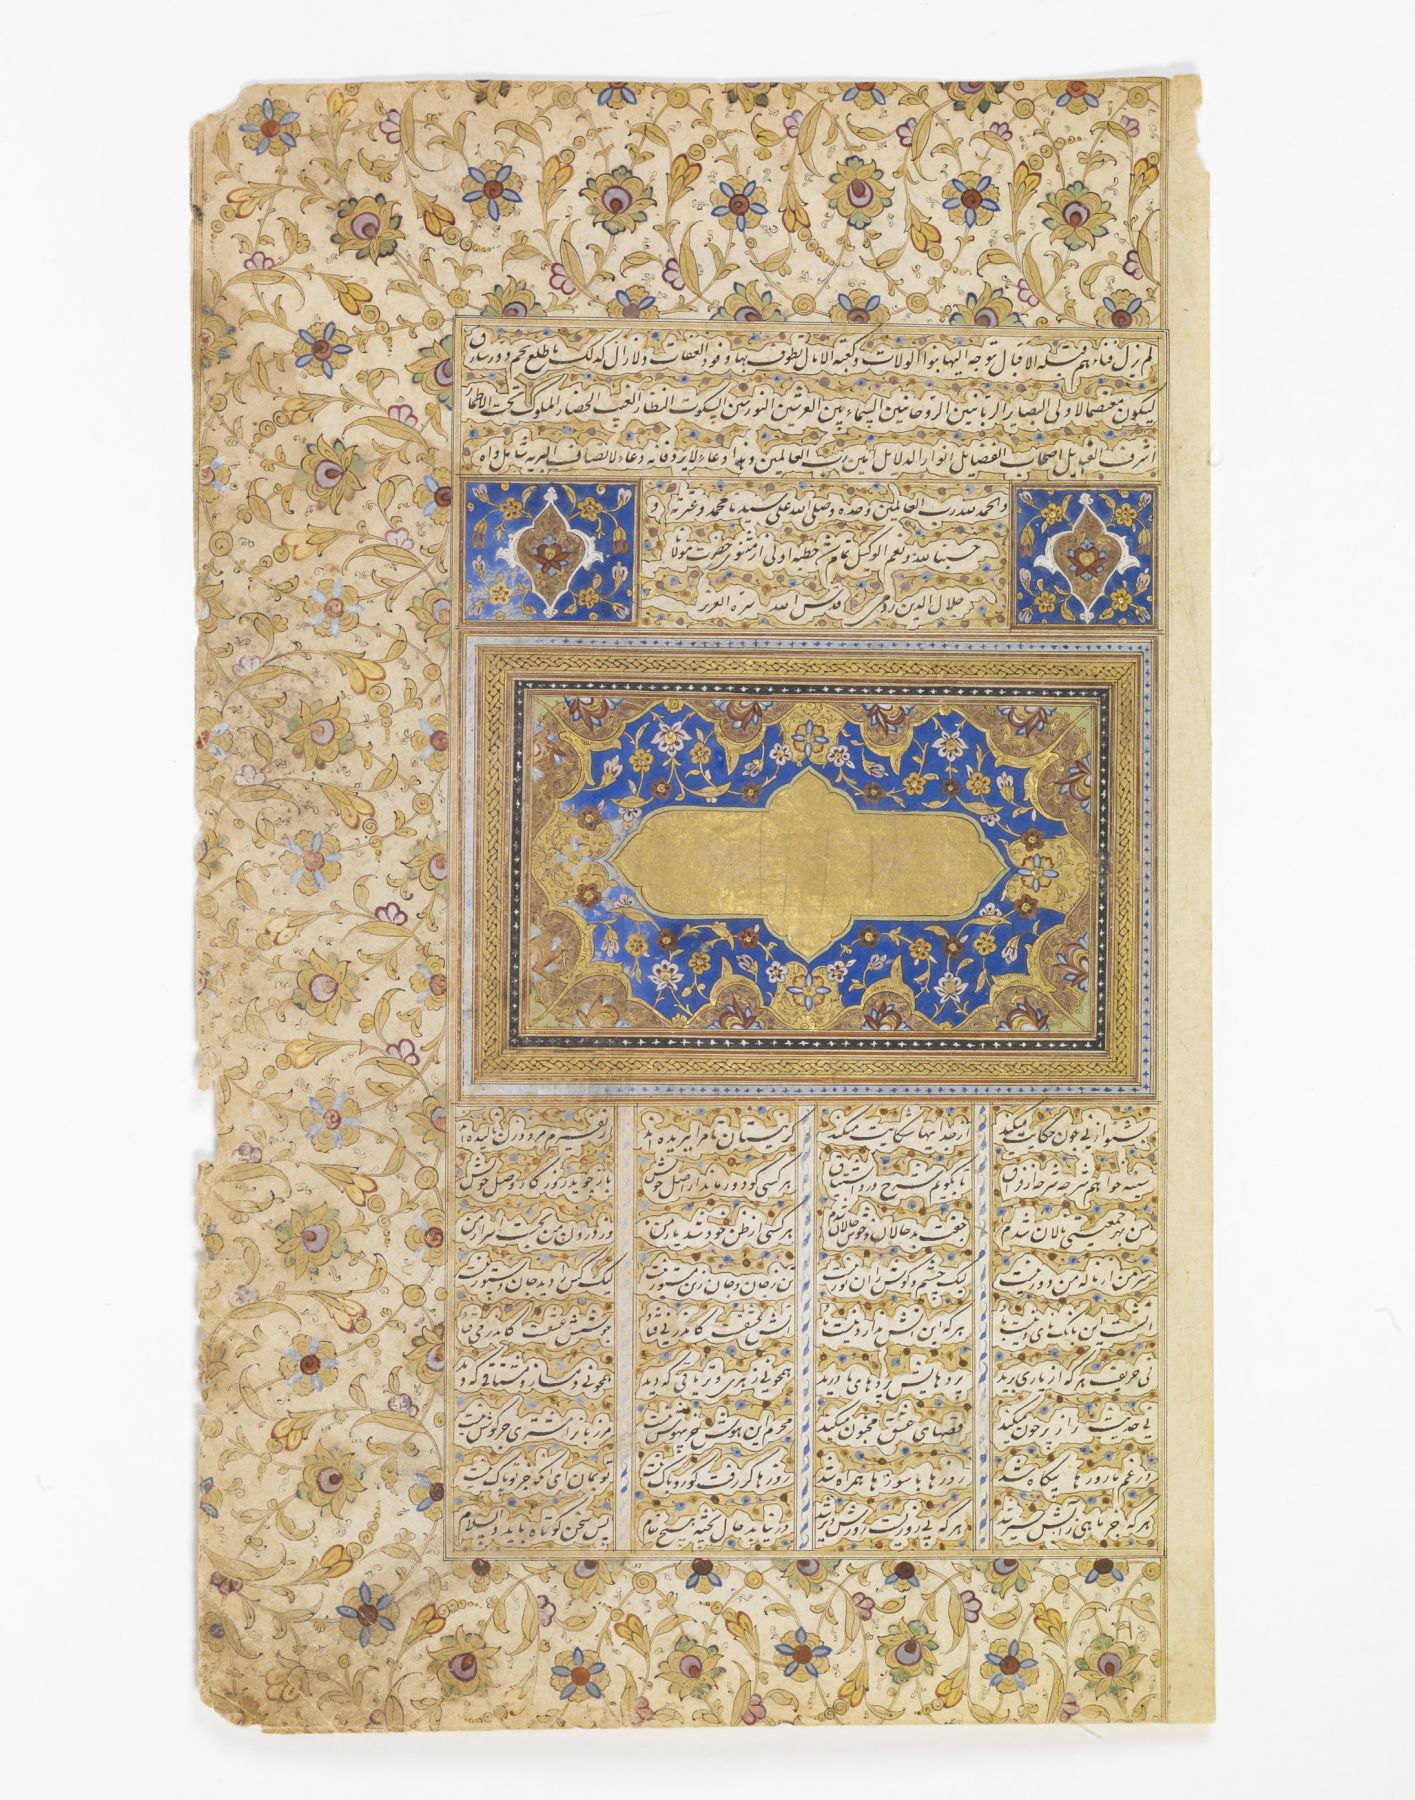 لم یزل فناءهم قبلة الاقبال توجه الیها بنوا الولات وکعبة الامال تطوف بها وفود العفات ولازال کذلک ما طلع نجم وذر شارق
لیکون معتصما لاولی البصایر الربانیین الروحانیین السماءیین العرشیین النوریین السکوت النظار الغیب الحضار الملوک تحت الاطمار
اشرف القبایل اصحاب الفضایل انوار الدلایل امین رب العالمین وهذا دعاء لایرد فانه دعاء لاصناف البریه شامل
والحمد لله رب العالمین وحده وصلی الله علی سیدنا محمد وعترته و
حسبنا الله ونعم الوکیل تمام شد خطبه اولی از مثنوی حضرت مولانا
جلال الدین رومی قدس الله سره العزیز
بشنو از نی چون حکایت میکند از جداییها شکایت میکند کز نیستان تا مرا ببریده اند از نفیرم مرد و زن نالیده اند
سینه خواهم شرحه شرحه از فراق تا بگویم شرح درد اشتیاق هر کسی کو دور ماند از اصل خویش باز جوید روزگار وصل خویش
من بهر جمعیتی نالان شدم جفت بدحالان و خوش حالان شدم هر کسی از ظن خود شد یار من وز درون من نجست اسرار من
سر من از ناله من دور نیست لیک چشم و گوش را ان نور نیست تن ز جان و جان ز تن مستور نیست لیک کس را دید جان دستور نیست
اتشست این بانک نای و نیست باد هر که این اتش ندارد نیست باد اتش عشقست کاندر نی فتاد جوشش عشقست کاندر می فتاد
نی حریف هر که از یاری برید پردهایش پردهای ما درید همچو نی زهری و تریاقی که دید همچو نی دمساز و مشتاقی که دید
نی حدیث راه پر خون میکند قصهای عشق مجنون میکند محرم این هوش جز بیهوش نیست مر زبانرا مشتری جز گوش نیست
در غم ما روزها بیگاه شد روزها با سوزها همراه شد روزها گر رفت گو رو باک نیست تو بمان ای آنکه جز تو پاک نیست
هر که جز ماهی ز آبش سیر شد هر که بی روزیست روزش دیر شد در نیابد حال پخته هیچ خام پس سخن کوتاه باید والسلام